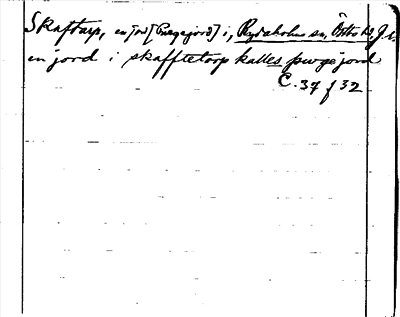 Skaftarp, en jord [Purgejord] i, Rydaholms sn, Östbo hd. J. l.
en jord i skafftetorp kalles purgejord
C. 37 f 32